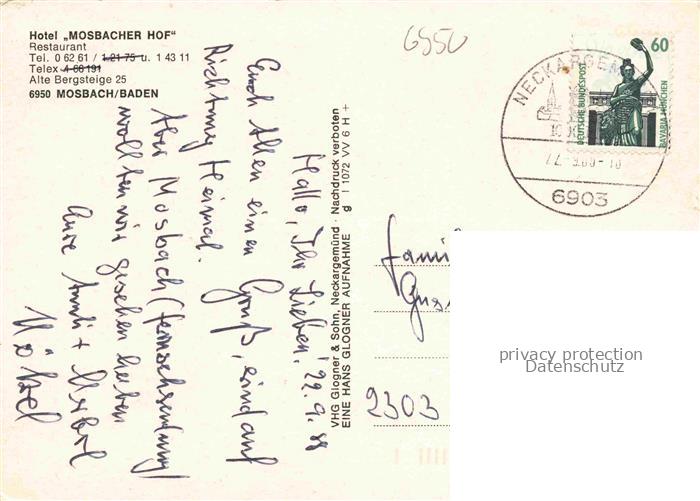 Hotel „MOSBACHER HOF"
Restaurant
Tel. 0 62 61 / 1 21 75 u. 1 43 11
Telex 4 66 191
Alte Bergsteige 25
6950 MOSBACH/BADEN
6950
Hallo, Ihr Lieben! 22.9.88
Euch Allen einen Gruß, sind auf
Richtung Heimat.
Aber Mosbach (Fernsehsendung)
wollten wir gesehen haben
Eure
VHG Glogner & Sohn, Neckargemünd · Nachdruck verboten
EINE HANS GLOGNER AUFNAHME g l 1072 VV 6 H +
NECKARGEM
6903
60
DEUTSCHE BUNDESPOST
BAVARIA MÜNCHEN
Fami
2303
privacy protection
Datenschutz